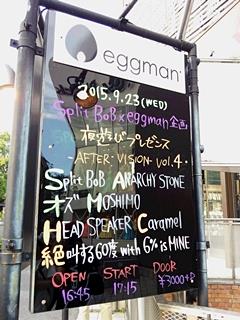 eggman
2015.9.23(WED)
Split BoB×eggman企画
夜遊びプレゼンス
AFTER・VISION vol.4・
Split BoB ANARCHY STONE
オズ MOSHIMO
HEAD SPEAKER Caramel
絶叫する60度 with 6% is MINE
OPEN START DOOR
16:45 17:15 ¥3000+D